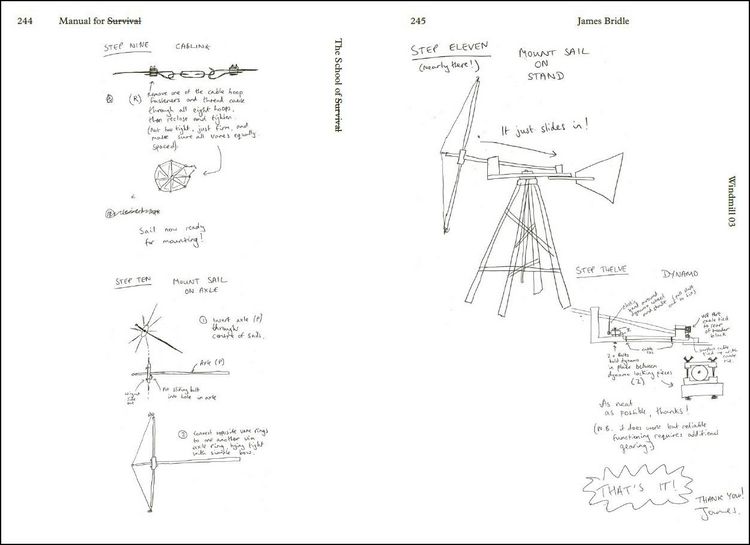 244
Manual for Survival
The School of Survival
STEP NINE
CABLING
(R)
Remove one of the cable hoop
fasteners and thread cable
through all eight hoops,
then reclose and tighten.
(Not too tight, just firm, and
make sure all vanes equally
spaced).
Sail now ready
for mounting!
STEP TEN
MOUNT SAIL
ON AXLE
① Insert axle (P)
through
centre of sails.
Axle (P)
sliding bolt
into hole in axle
② Connect opposite vane rings
to one another via
axle ring, tying tight
with suitable bow.
245
James Bridle
Windmill 03
STEP ELEVEN
(Nearly there!)
MOUNT SAIL
ON
STAND
It just slides in!
STEP TWELVE
DYNAMO
elastic
band around
dynamo wheel
and
cable tied
to rear
of
block
cable
ties
2 x Bolts
hold dynamo
in place between
dynamo locking pieces
(Z)
As neat
as possible, thanks!
(N.B. it does work but reliable
functioning requires additional
gearing.)
THAT'S IT!
THANK YOU!
James.